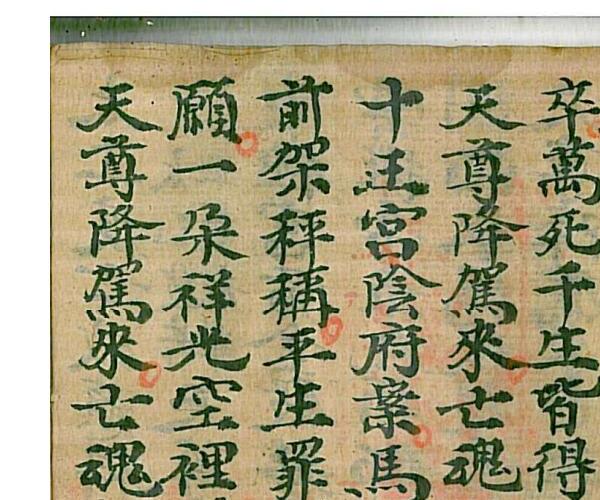 卒萬死千生皆得
天尊降駕來亡魂
十王宮陰府案馬
前架秤稱平生罪
願一朵祥光空裡
天尊降駕來亡魂